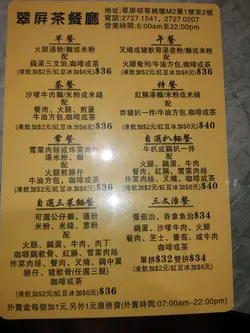 翠屏茶餐廳
地址:翠屏邨翠楣樓M2層1號至2號
電話:2727 1541, 2727 0207
營業時間:6:00am至22:00pm
早餐
火腿通粉/麵或米粉
配
餐肉、火腿、煎蛋
牛油方包,咖啡或茶
(凍飲加$2元/紅豆冰加$6元) $36
午餐
叉燒或豬軟骨湯意粉/麵或米粉
配
火腿奄列/牛油方包
咖啡或茶 $36
(凍飲加$2元/紅豆冰加$6元)
茶餐
沙嗲牛肉麵/米粉或米線
配
餐肉、火腿、煎蛋
牛油方包,咖啡或茶
(凍飲加$2元/紅豆冰加$6元) $36
特餐
紅腸湯麵/米粉或米線
配
炸豬扒一件/牛油方包,咖啡或茶
(凍飲加$2元/紅豆冰加$6元) $40
常餐
雪菜肉絲或炸菜肉絲
湯米粉、麵
配
火腿煎腸仔
牛油方包,咖啡或茶
(凍飲加$2元/紅豆冰加$6元) $36
自選扒麵餐
牛扒或雞扒一件
配
火腿、餐肉、雪菜肉絲
炸菜肉絲、叉燒、雞中翼
紅腸、五香肉丁,咖啡或茶
(凍飲加$2元/紅豆冰加$6元) $40
自選三菜麵餐
可選公仔麵、通粉
米粉、米線、意粉
配
火腿、雞蛋、牛肉、肉丁
咖喱雞軟骨、紅腸、雪菜肉絲
炸菜肉絲、餐肉、叉燒、雞中翼
腸仔、豬軟骨(任選三樣)
咖啡或茶 $36
(凍飲加$2元/紅豆冰加$6元)
三文治餐
番茄治、吞拿魚治$34
(沙律、咖啡或茶)
火腿、雞蛋、沙嗲牛肉
餐肉、芝士、番茄、或牛肉
咖啡或茶
單拼$32 雙拼$34
(凍飲加$2元/紅豆冰加$6元)
外賣盒每個加1元,另外1元服務費(外賣時間:07:00am-22:00pm)